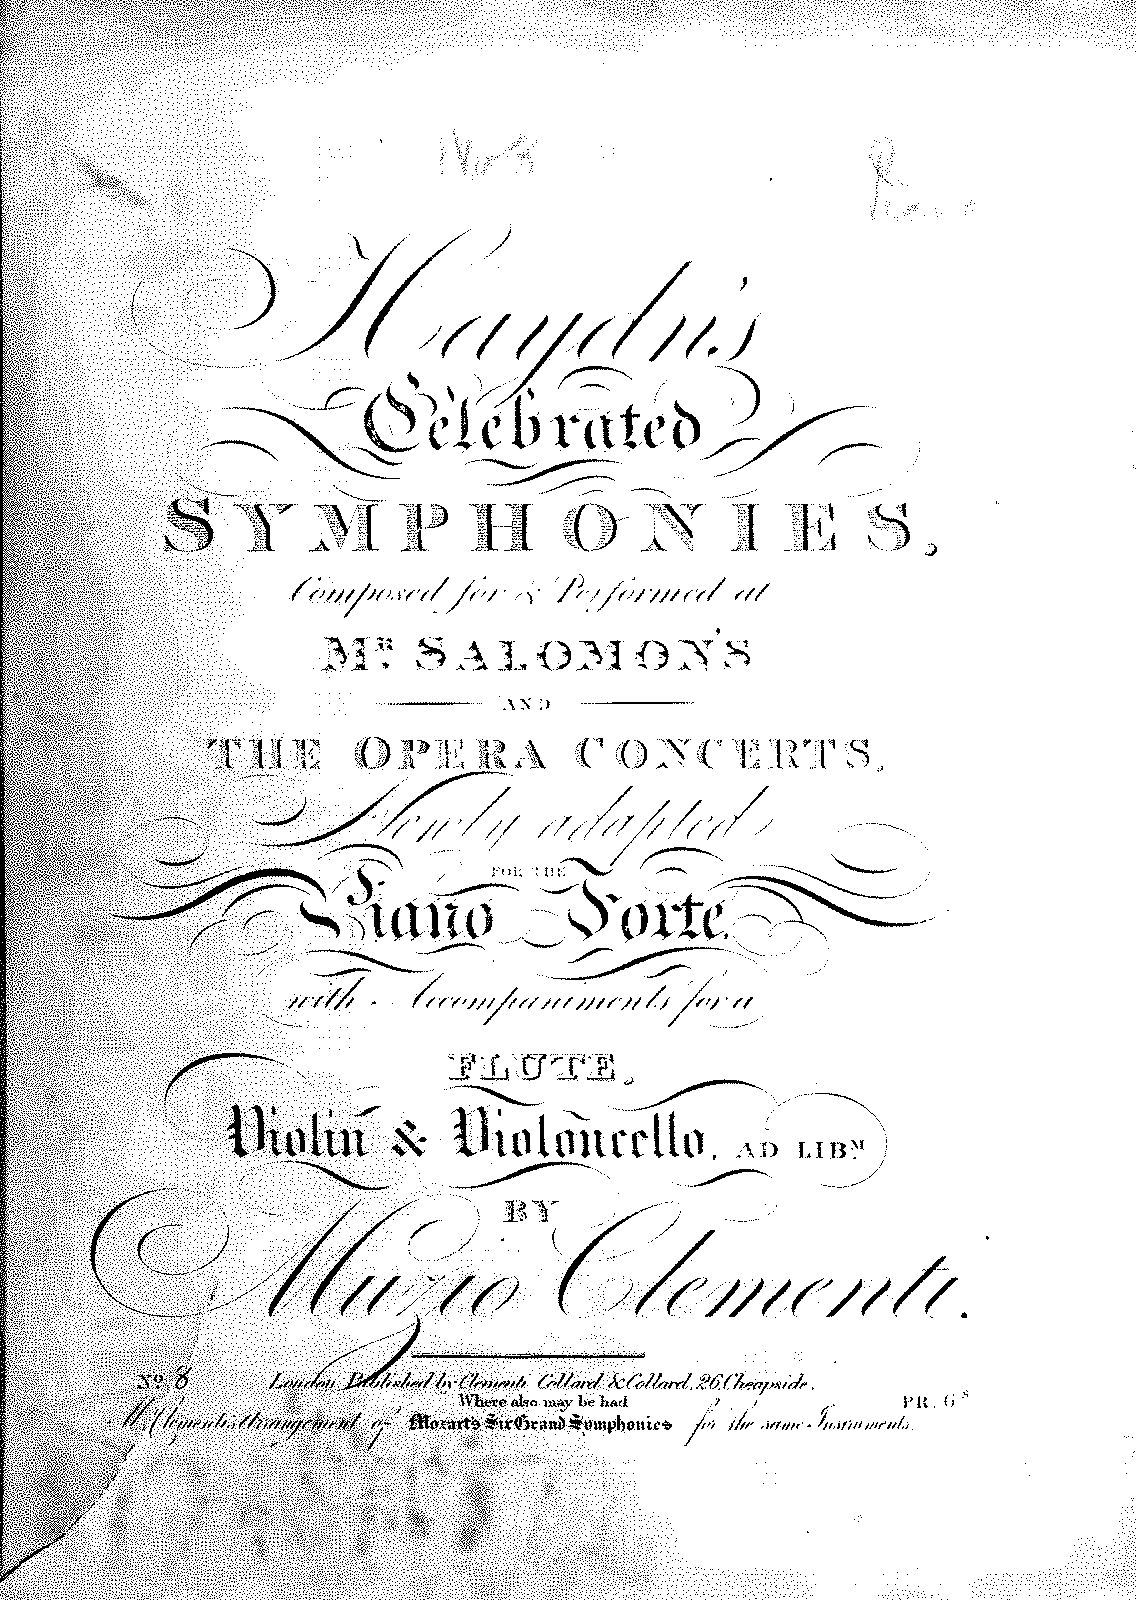 No 8
Haydn's
Celebrated
SYMPHONIES,
Composed for & Performed at
Mr. SALOMON'S
AND
THE OPERA CONCERTS,
Newly adapted
FOR THE
Piano Forte.
with Accompaniments for a
FLUTE,
Violin & Violoncello, AD LIBM.
BY
Muzio Clementi.
No. 8
London Published by Clementi Collard & Collard, 26, Cheapside.
Where also may be had
PR. 6s
Mr. Clementi's Arrangement of Mozart's Six Grand Symphonies for the same Instruments.